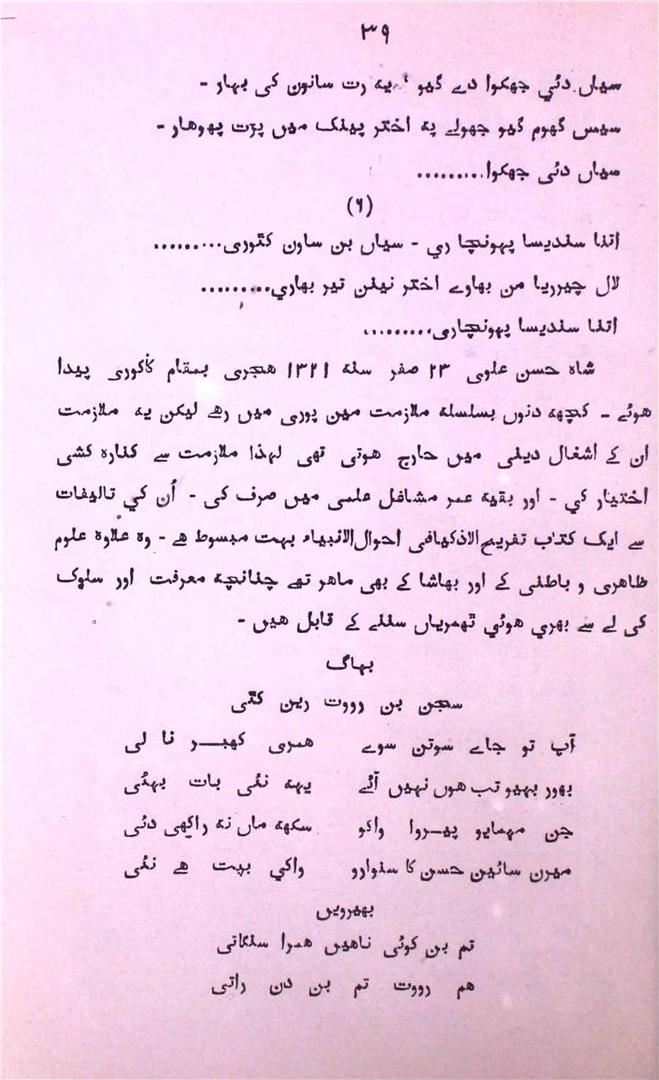 ۳۹
سیاں دئي جھکوا دے گیو ‘ یہ رت سانون کی بہار -
سیس گھوم گیو جھولے پہ اختر پینک میں پڑت پھوھار -
سیاں دئی جھکوا.........
(۶)
اتنا سندیسا پہونچا ري - سیاں بن ساون کٹوری.........
لال چیرریا من بھاوے اختر نینن تیر بھاري.........
اتنا سندیسا پہونچاری.........
شاہ حسن علوی ۲۳ صفر سنہ ۱۳۲۱ ھجری بمقام کاکوری پیدا
ھوئے - کچھہ دنوں بسلسلہ ملازمت مین پوری میں رھے لیکن یہ ملازمت
ان کے اشغال دینی میں حارج ھوتی تھی لہذا ملازمت سے کنارہ کشی
اختیار کي - اور بقیہ عمر مشاغل علمی میں صرف کی - اُن کي تالیفات
سے ایک کتاب تفریح الاذکیافی احوال الانبیاء بہت مبسوط ھے - وہ علاوہ علوم
ظاھری و باطنی کے اور بھاشا کے بھی ماھر تھے چنانچہ معرفت اور سلوک
کی لے سے بھري ھوئي ٹھمریاں سننے کے قابل ھیں -
بہاگ
سجن بن رووت رین کٹی
آپ تو جاے سوتن سوے ھمری کھبر نا لی
بھور بھیو تب ھوں نہیں آئے یہہ نئی بات بھئی
جن مہمایو پیروا واکو سکھہ ماں نہ راکھی دئی
میرن سائین حسن کا سنوارو واکي بپت ھے نئی
بھیرویں
تم بن کوئی ناھیں ھمرا سنگاتی
ھم رووت تم بن دن راتی